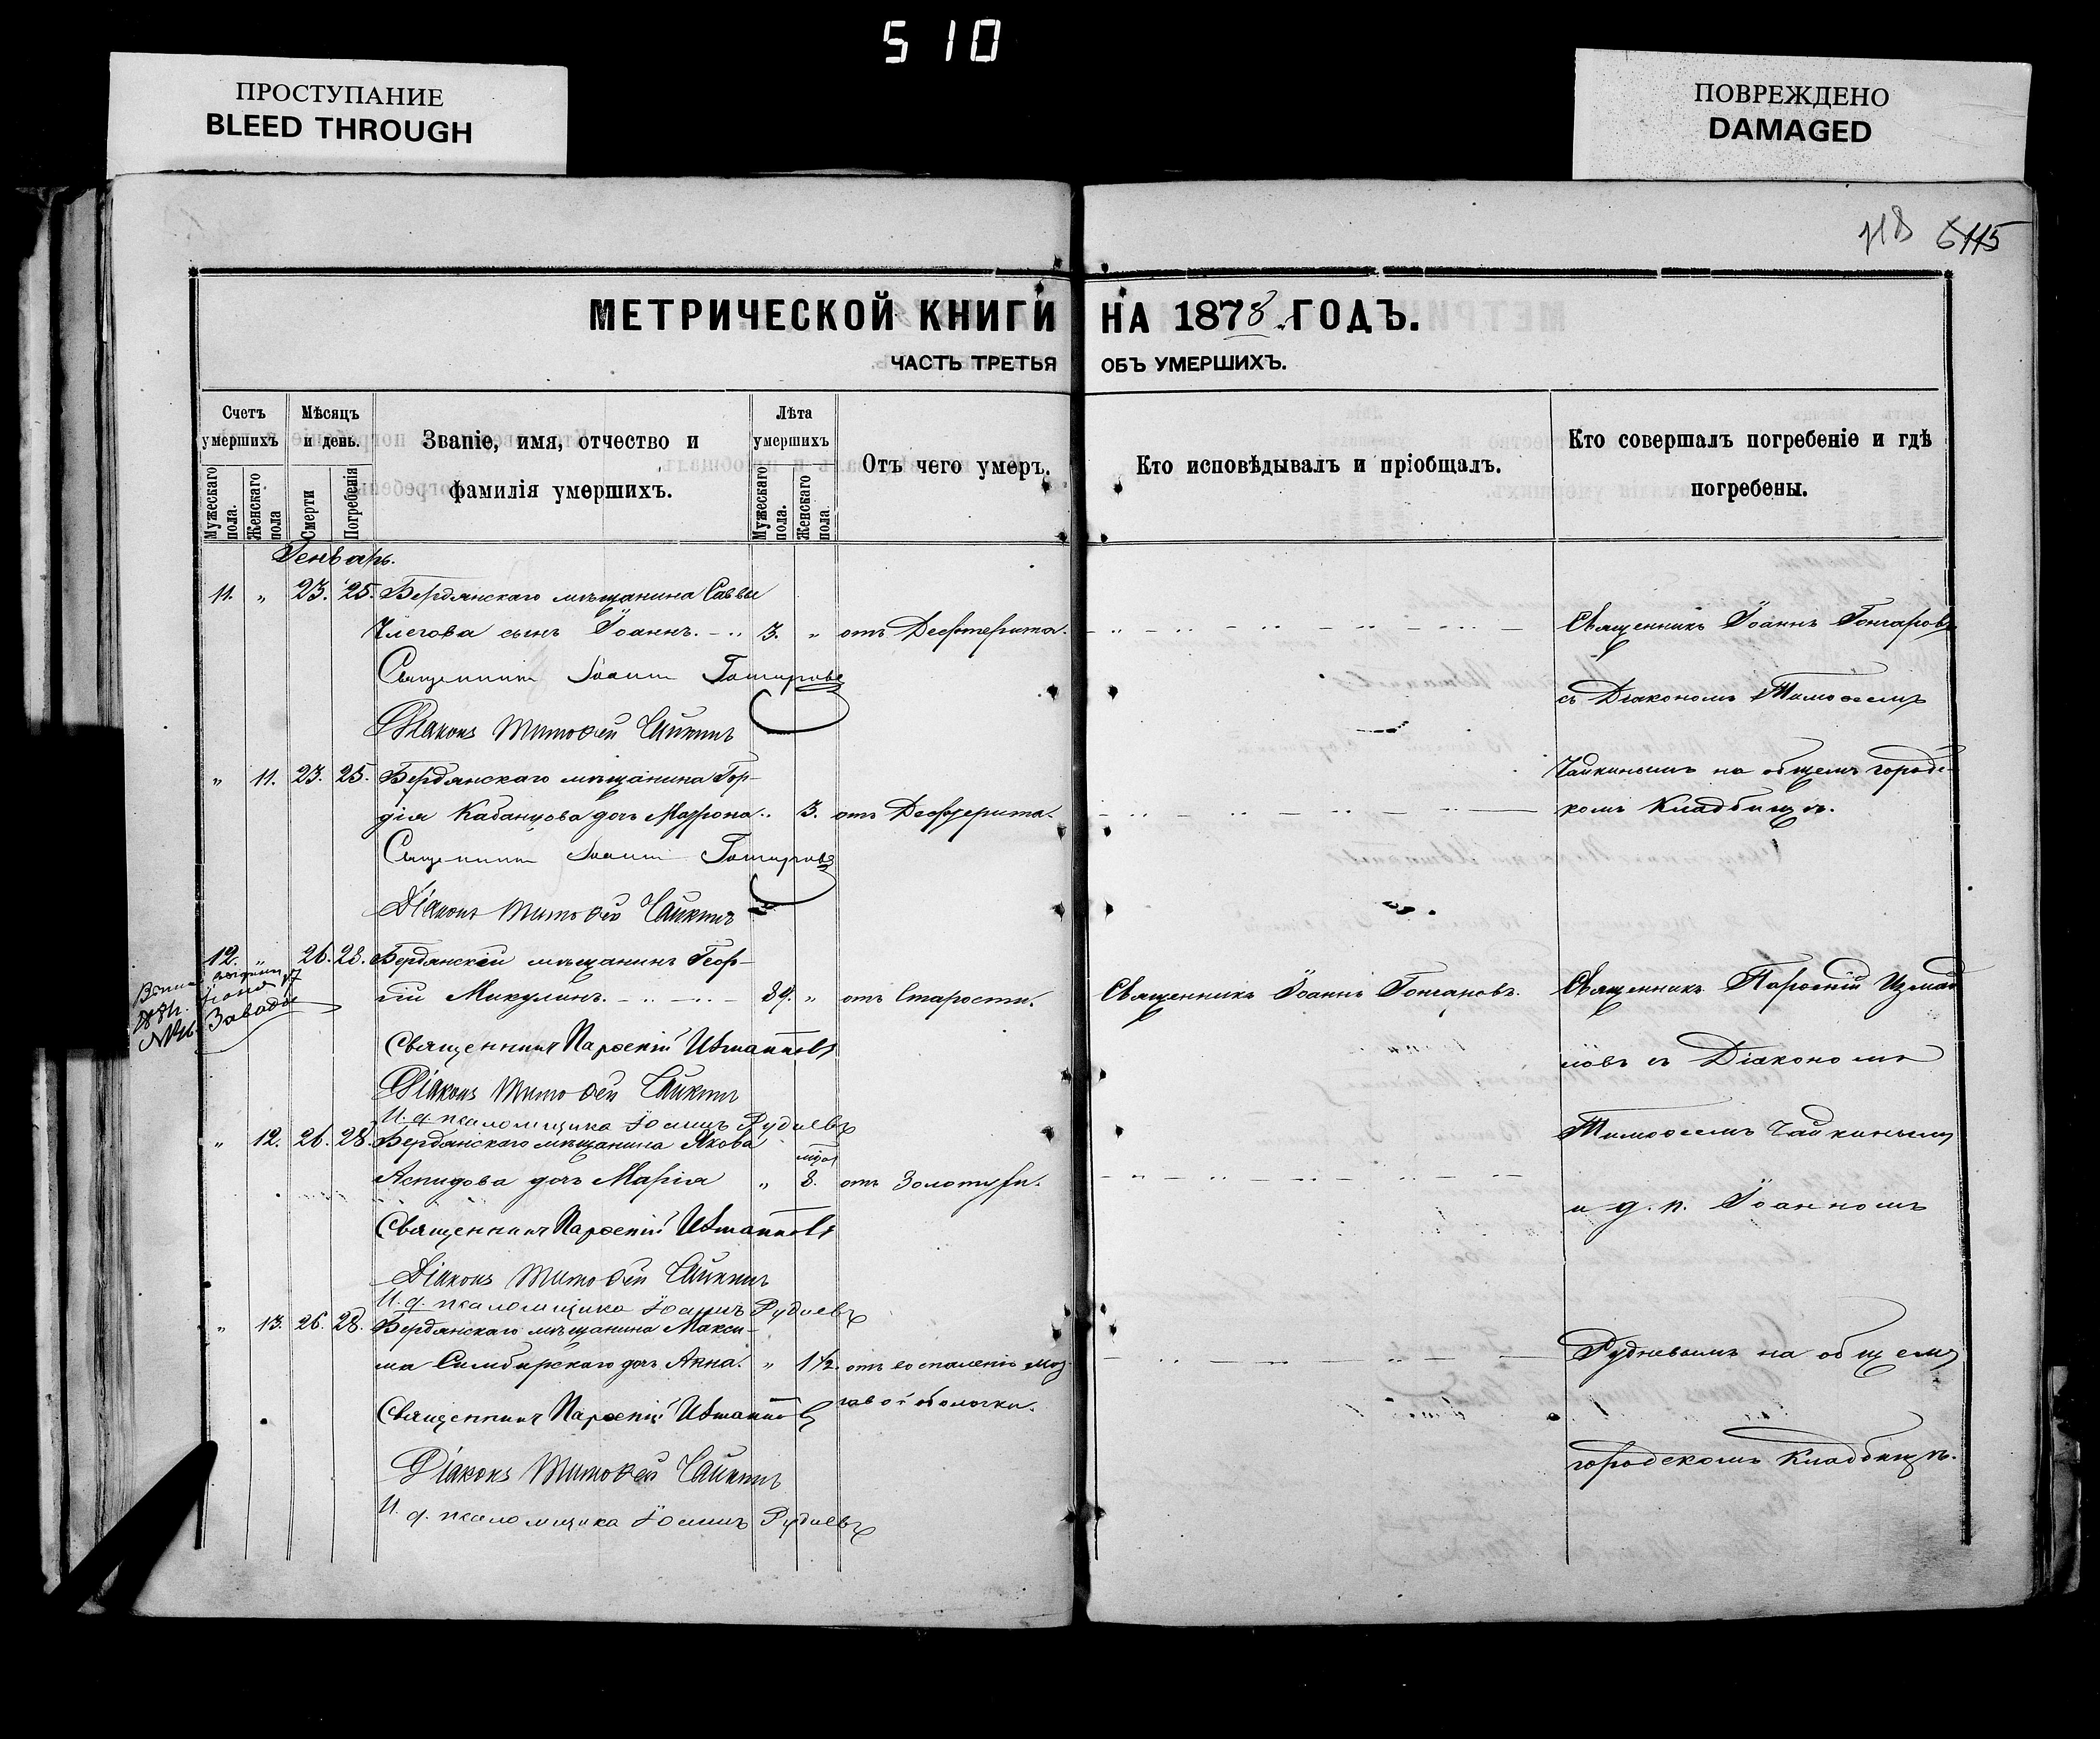 510
ПРОСТУПАНИЕ
BLEED THROUGH
ПОВРЕЖДЕНО
DAMAGED
118 6115
МЕТРИЧЕСКОЙ КНИГИ НА 1878 ГОДЪ.
ЧАСТЬ ТРЕТЬЯ ОБЪ УМЕРШИХЪ.
Счетъ умершихъ
Мужескаго пола.
Женскаго пола
Мѣсяцъ и день.
Смерти
Погребенія
Званіе, имя, отчество и фамилія умершихъ.
Лѣта умершихъ
Мужескаго пола.
Женскаго пола.
Отъ чего умеръ.
Кто исповѣдывалъ и пріобщалъ.
Кто совершалъ погребеніе и гдѣ погребены.
Генварь.
11. " 23. 25. Бердянскаго мѣщанина Саввы
сынъ Іоаннъ. 3. " отъ Дефтерита. Священникъ Іоаннъ Гончаровъ
Священникъ Іоаннъ Гончаровъ
съ Діакономъ Тимоѳеемъ
Діаконъ Тимоѳей Чайкинъ
" 11. 23. 25. Бердянскаго мѣщанина Гор- Чайкинымъ на общемъ городс-
дія Кабанцова дочь Матрона. 3. отъ Дефтерита. комъ Кладбищѣ.
Священникъ Іоаннъ Гончаровъ
Діаконъ Тимоѳей Чайкинъ
12. " 26. 28. Бердянскій мѣщанинъ Геор-
гій Микулинъ. 84. " отъ Старости. Священникъ Іоаннъ Гончаровъ. Священникъ Парѳеній Измаи
Священникъ Парѳеній Измаиловъ
ловъ съ Діакономъ
Діаконъ Тимоѳей Чайкинъ
И. д. псаломщика Іоаннъ Рудневъ
" 12. 26. 28. Бердянскаго мѣщанина Якова Тимоѳеемъ Чайкинымъ
Аспидова дочь Марія " 8. отъ Золотухи.
и д. п. Іоанномъ
Священникъ Парѳеній Измаиловъ
Діаконъ Тимоѳей Чайкинъ
И. д. псаломщика Іоаннъ Рудневъ
" 13. 26. 28. Бердянскаго мѣщанина Макси-
ма Симбирскаго дочь Анна. " 1 1/2. отъ воспаленія моз Рудневымъ на общемъ
говой оболочки.
Священникъ Парѳеній Измаиловъ
городскомъ Кладбищѣ.
Діаконъ Тимоѳей Чайкинъ
И. д. псаломщика Іоаннъ Рудневъ